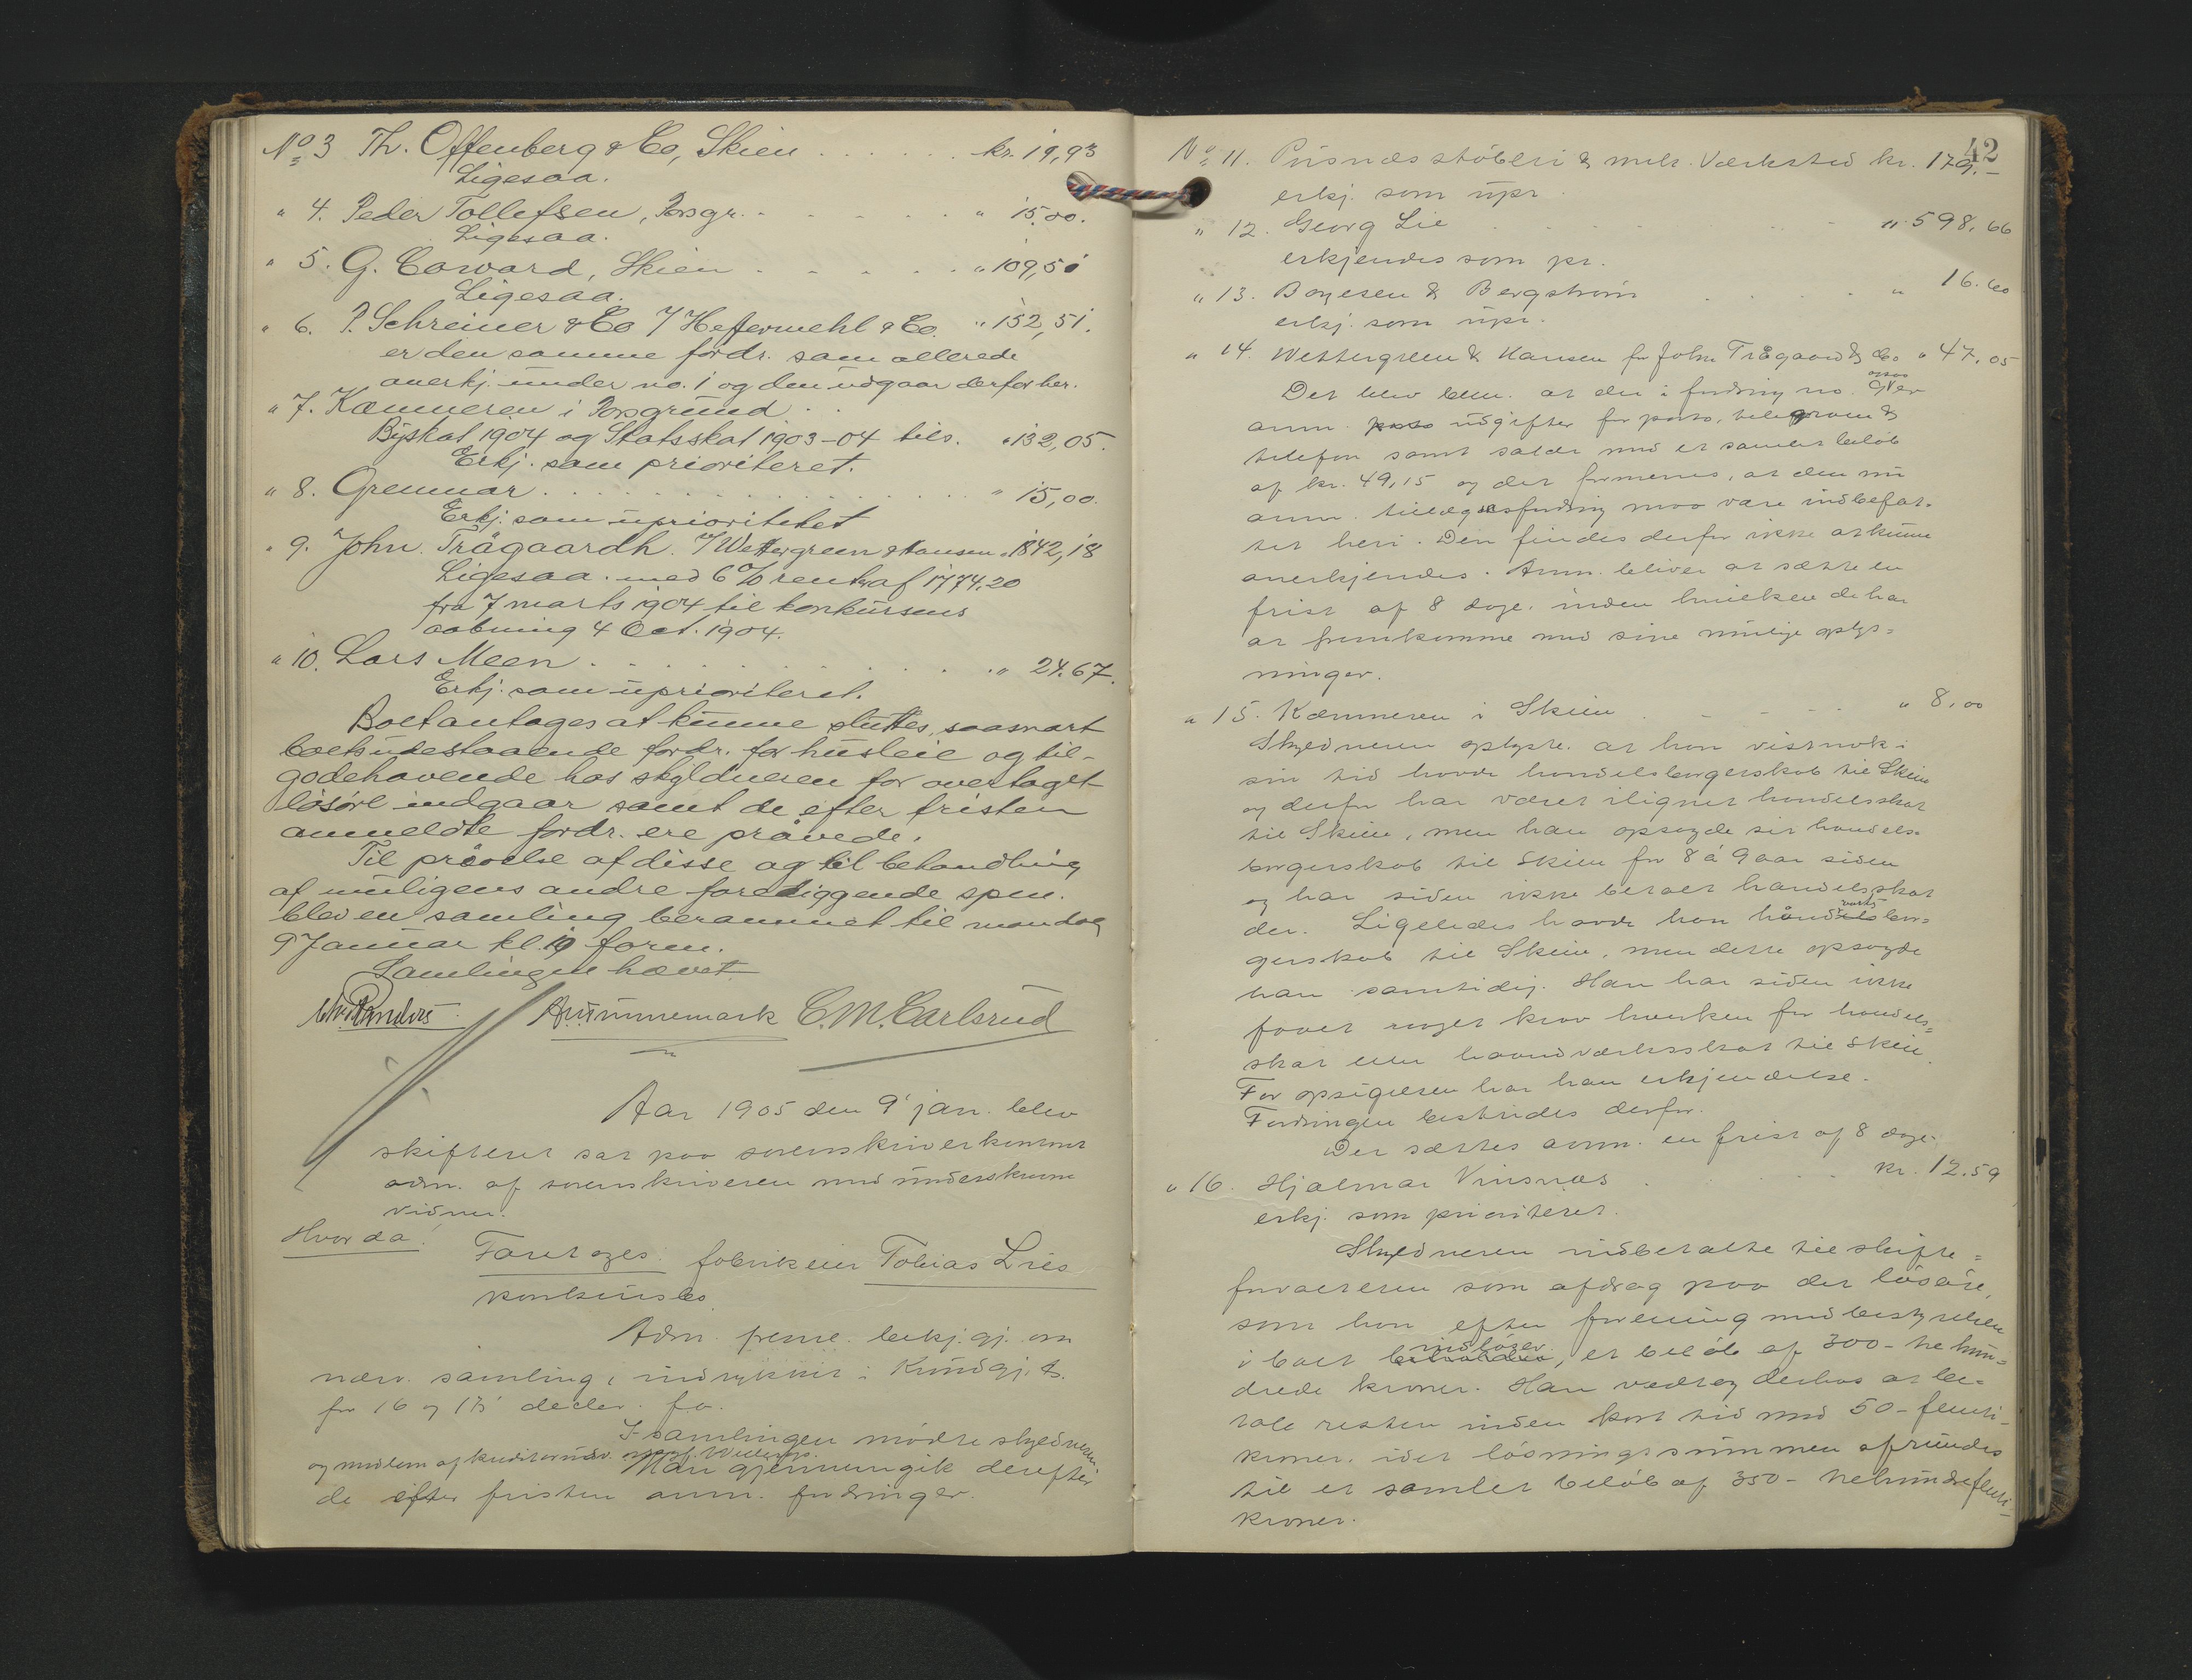 No 3 Th. Offenberg & Co, Skien . . . . . . kr. 19,93
Ligesaa.
" 4. Peder Tollefsen, Porsgr. . . . . . . " 15.00.
Ligesaa.
" 5. G. Coward, Skien . . . . . " 109,50
Ligesaa.
" 6. P. Schreiner & Co v/ Heftermehl & Co. " 152,51.
er den samme fordr. som allerede
anerkj. under no. 1 og den udgaar derfor her.
" 7. Kæmneren i Porsgrund . .
Byskat 1904 og Statsskat 1903-04 tils. " 132,05.
Erkj. som prioriteret.
" 8. Gremmar . . . . . . . . . " 15,00.
Erkj. som uprioritetet
" 9. John Trägaardh. v/ Wettergreen & Hansen " 1842,18
Ligesaa. med 6% renter af 1774.20
fra 7 marts 1904 til konkursens
aabning 4 Oct. 1904.
" 10. Lars Meen . . . . . . . . " 24.67.
Erkj. som uprioriteret.
Boet antages at kunne sluttes, saasnart
boets udestaaende fordr. for husleie og til-
godehavende hos skyldneren for overtaget
løsøre indgaar samt de efter fristen
anmeldte fordr. ere prøvede.
Til prøvelse af disse og til behandling
af muligens andre foreliggende spm.
blev en samling berammet til mandag
9 Januar kl. 10 form.
Samlingen hævet
C. M. Carlsrud
Aar 1905 den 9' jan. blev
skifteret sat paa sorenskriverkontoret
adm. af sorenskriveren med underskrevne
vidner.
Hvor da!
Foretoges: fabrikeier Tobias Lies
konkursbo.
Adm. freml. bekj.gj. om
nærv. samling, indrykket i Kundgj. t.
for 16 og 17' decbr. f.a.
I samlingen mødte skyldneren
og medlem af kreditorudv.
Man gjennemgik derefter
de efter fristen anm. fordringer.
42
No 11. Pusnæs støberi & mek. Værksted kr. 179.-
erkj. som upr.
" 12. Georg Lie . . . . . . " 598.66
erkjendes som pr.
" 13. Boyesen & Bergstrøm . . . . " 16.60
erkj. som upr.
" 14. Wettergreen & Hansen for John Trägaard & Co " 47.05
Det blev bem. at der i fordring no. 9 ogsaa er
anm. udgifter for porto, telegram &
telefon samt saldo med et samlet beløb
af kr. 49,15 og det formenes, at den nu
anm. tillægsfordring maa være indbefat-
tet heri. Den findes derfor ikke at kunne
anerkjendes. Anm. bliver at sætte en
frist af 8 dage, inden hvilken de har
at fremkomme med sine mulige oplys-
ninger.
" 15. Kæmneren i Skien . . . . " 8,00
Skyldneren oplyste, at han vistnok i
sin tid havde handelsborgerskab til Skien
og derfor har været ilignet handelsskat
til Skien, men han opsagde sit handels-
borgerskab til Skien for 8 à 9 aar siden
og har siden ikke betalt handelsskat
der. Ligeledes havde han håndverksbor-
gerskab til Skien, men dette opsagde
han samtidig. Han har siden ikke
faaet noget krav hverken for handels-
skat eller haandværksskat til Skien.
For opsigelsen har han erkjendelse.
Fordringen bestrides derfor.
Der sættes anm. en frist af 8 dage.
" 16. Hjalmar Vinsnæs . . . . kr. 12.59
erkj. som prioriteret.
Skyldneren indbetalte til skifte-
forvalteren som afdrag paa det løsøre,
som han efter forening med bestyrelsen
i boet indløser, et beløb af 300 - tre hun-
drede kroner. Han vedtog derhos at be-
tale resten inden kort tid med 50 - femti -
kroner, idet løsningssummen afrundes
til et samlet beløb af 350 - trehundrefemti -
kroner.